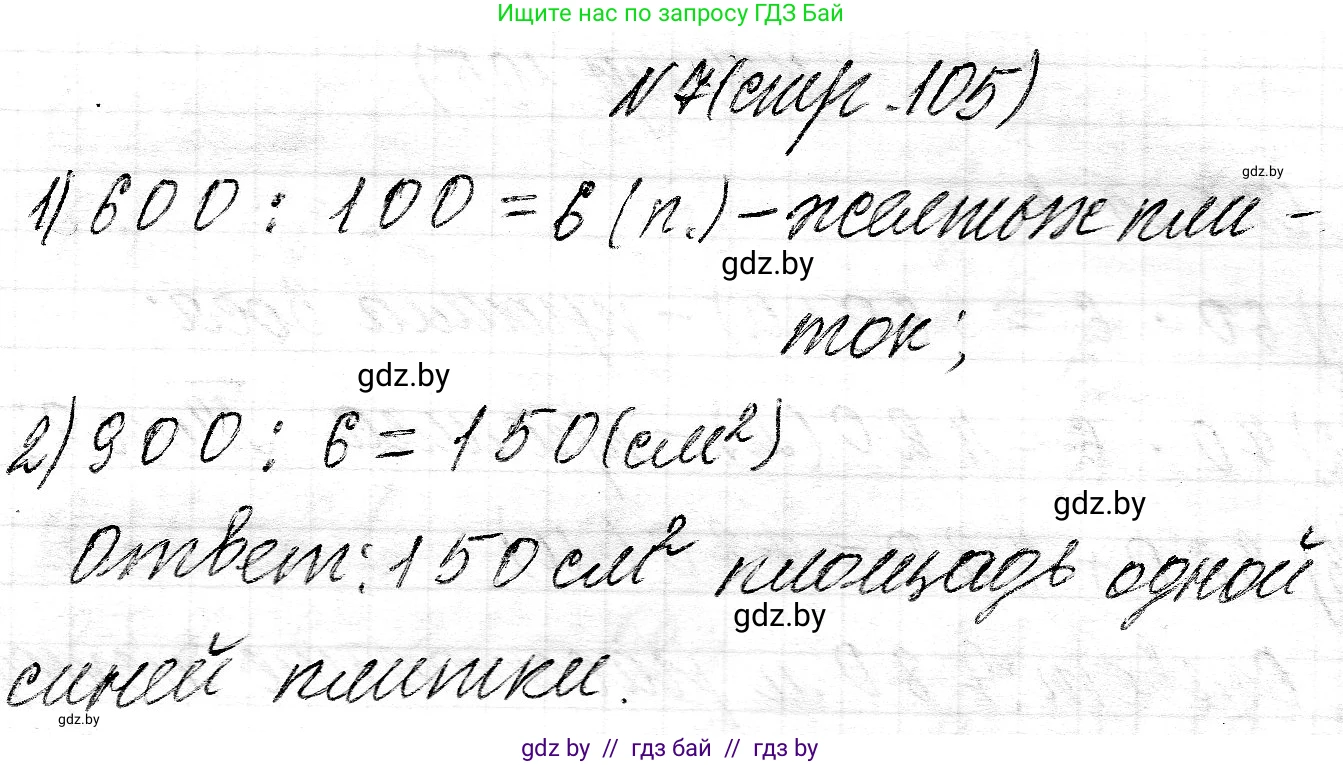 Ищите нас по запросу ГДЗ Бай
N 7 (стр. 105)
gdz.by
1) 600 : 100 = 6 (п.) - желтых пли-
gdz.by
ток;
gdz.by
2) 900 : 6 = 150 (см²)
gdz.by
Ответ: 150 см² площадь одной
gdz.by
синей плитки.
gdz.by
gdz by // гдз бай // гдз by